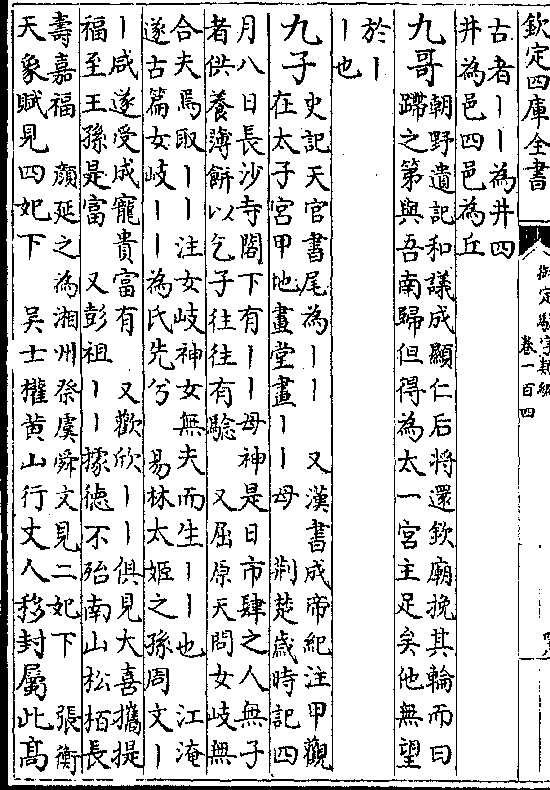 欽定四庫全書
御定駢字類編
卷一百四
古者丨丨為井四
井為邑四邑為丘
九哥
朝野遺記和議成顯仁后將還欽廟挽其輪而曰
蹛之第與吾南歸但得為太一宮主足矣他無望
於丨
丨也
九子
史記天官書尾為丨丨　又漢書成帝紀注甲觀
在太子宮甲地畫堂畫丨丨母　荆楚歲時記四
月八日長沙寺閣下有丨丨母神是日市肆之人無子
者供養薄餅以乞子往往有驗　又屈原天問女岐無
合夫焉取丨丨注女岐神女無夫而生丨丨也　江淹
遂古篇女岐丨丨為氏先兮　易林太姬之孫周文丨
丨咸遂受成寵貴富有　又歡欣丨丨俱見大喜攜提
福至王孫是富　又彭祖丨丨據德不殆南山松栢長
壽嘉福　顏延之為湘州祭虞舜文見二妃下　張衡
天象賦見四妃下　吳士權黄山行丈人移封屬此髙